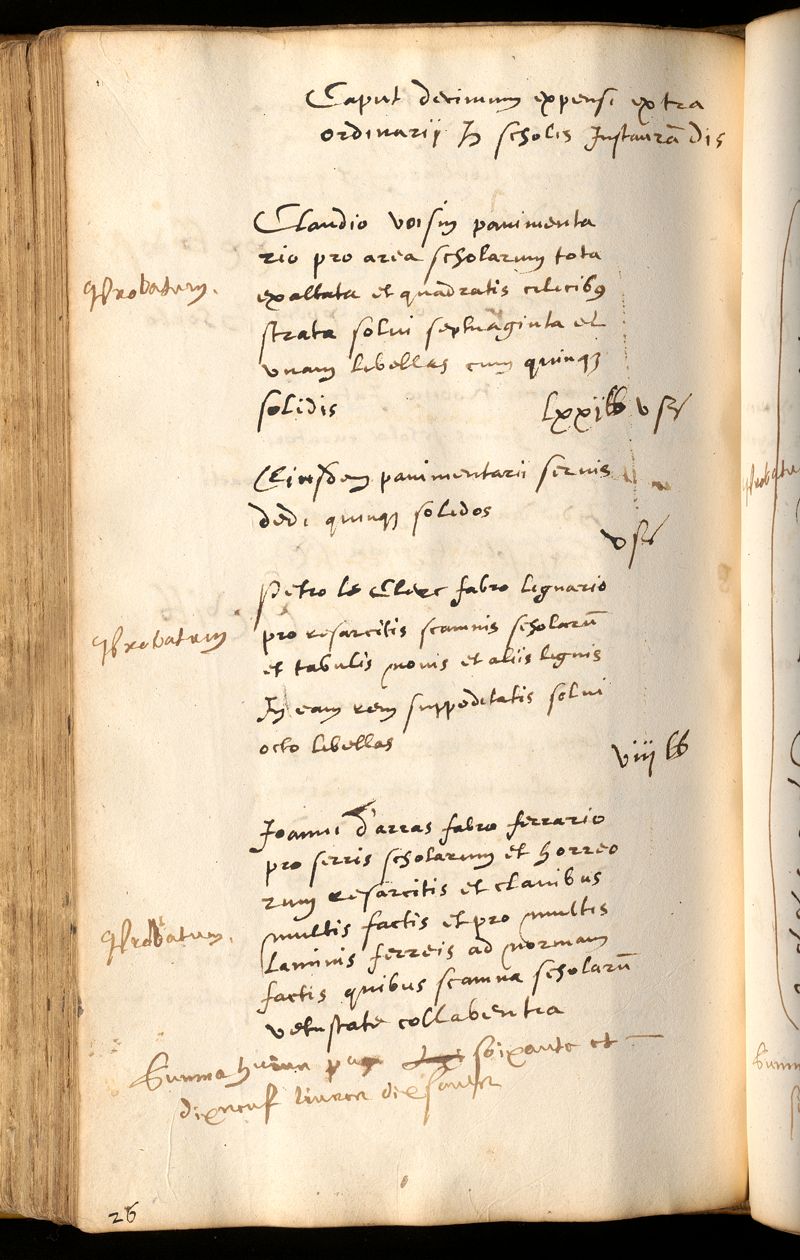 Caput decimum expensi extra
ordinarii In scholis Instaurādis
Claudio voisin pavimenta
rio pro area scholarum tota
probatum.
exaltata et quadratis cilicibꝰ
strata solui septuaginta et
vnam libellas cum quinqꝫ
solidis lxxj lb v s
Eiusdem pavimentarii seruis
dedi quinqꝫ solidos
v s
Petro le Clerc fabro lignario
probatum
pro resarcitis scamnis scholarū
et tabulis novis et aliis lignis
In eam rem suppeditatis solui
octo libellas viij lb
Joanni d'arras fabro ferrario
pro serris scholarum et horreo
rum resarcitis et clauibus
multis factis et pro multis
probatum.
laminis ferreis ad normam
factis quibus scamna scholarū
vetustate collabentia
Summa huius pag soixante et
dixneuf liures dix soulz
26